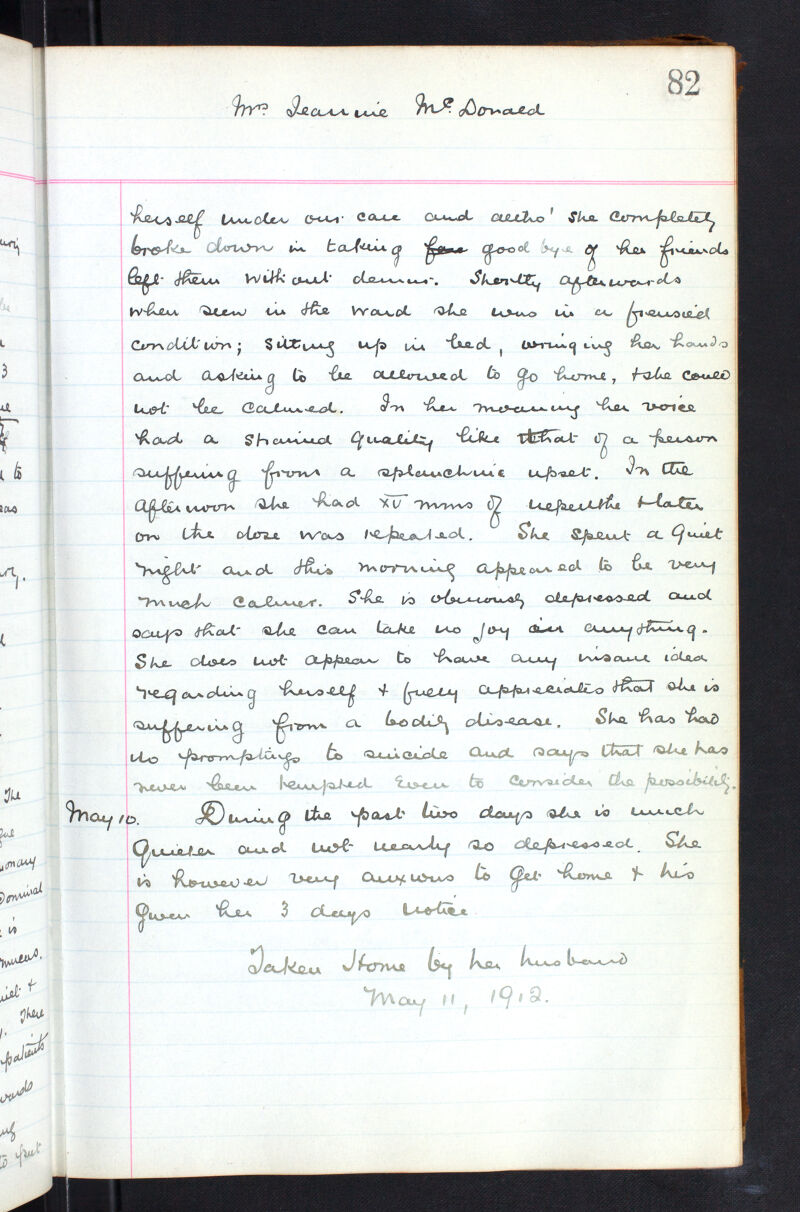 82
Mrs Jeannie McDonald
herself under our care and altho' she completely
broke down in taking good bye of her friends
left them without demur. Shortly afterwards
when seen in the ward she was in a frensied
condition; sitting up in bed, wringing her hands
and asking to be allowed to go home, & she could
not be calmed. In her moaning her voice
had a strained quality like that of a person
suffering from a splanchnic upset. In the
afternoon she had XV mms of nepenthe & later
on the dose was repeated. She spent a quiet
night and this morning appeared to be very
much calmer. She is obviously depressed and
says that she can take no joy in anything.
She does not appear to have any insane idea
regarding herself & fully appreciates that she is
suffering from a bodily disease. She has had
no promptings to suicide and says that she has
never been tempted even to consider the possibility.
May 10. During the past two days she is much
quieter and not nearly so depressed. She
is however very anxious to get home & his
given her 3 days notice
Taken Home by her husband
May 11, 1912.
3
to
eas
The
Dominal
is
mucus.
&
There
patients
wards
to put